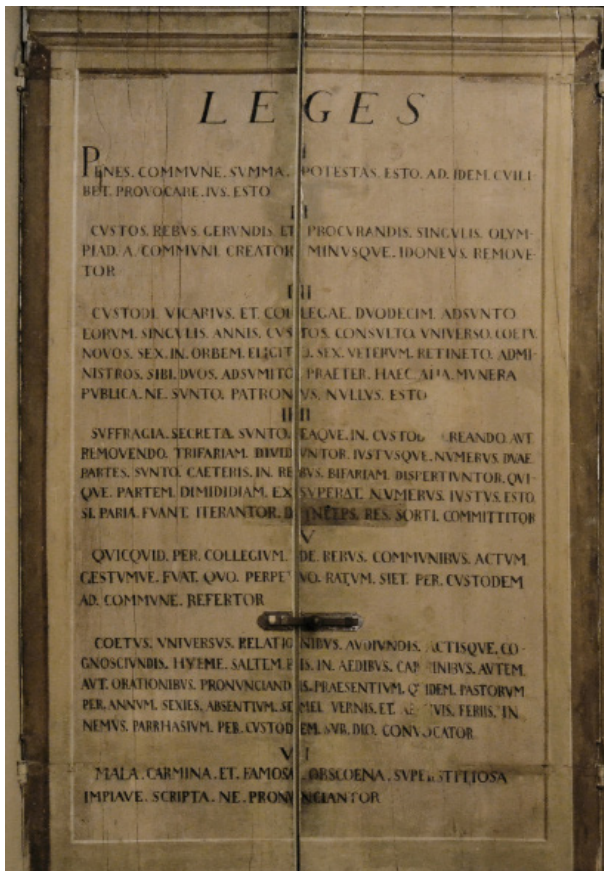 LEGES
I
PENES. COMMVNE. SVMMA. POTESTAS. ESTO. AD. IDEM. CVILI
BET. PROVOCARE. IVS. ESTO
II
CVSTOS. REBVS. GERVNDIS. ET PROCVRANDIS. SINGVLIS. OLYM-
PIAD. A. COMMVNI. CREATOR MINVSQVE. IDONEVS. REMOVE-
TOR
III
CVSTODI. VICARIVS. ET. COLLEGAE. DVODECIM. ADSVNTO
EORVM. SINGVLIS. ANNIS. CVSTOS. CONSVLTO. VNIVERSO. COETV
NOVOS. SEX. IN. ORBEM. ELIGITO. SEX. VETERVM. RETINETO. ADMI-
NISTROS. SIBI. DVOS. ADSVMITO PRAETER. HAEC ALIA. MVNERA
PVBLICA. NE. SVNTO. PATRONVS. NVLLVS. ESTO
IIII
SVFFRAGIA. SECRETA. SVNTO. EAQVE. IN. CVSTOD REANDO. AVT
REMOVENDO. TRIFARIAM. DIVIDVNTOR. IVSTVSQVE. NVMERVS. DVAE
PARTES. SVNTO. CAETERIS. IN. REBVS. BIFARIAM. DISPERTIVNTOR. QVI-
QVE. PARTEM. DIMIDIDIAM. EXSVPERAT. NVMERVS. IVSTVS. ESTO
SI. PARIA. FVANT. ITERANTOR. DEINCEPS. RES. SORTI. COMMITTITOR
V
QVICQVID. PER. COLLEGIVM. DE. REBVS. COMMVNIBVS. ACTVM
GESTVMVE. FVAT. QVO. PERPETVO. RATVM. SIET. PER. CVSTODEM
AD. COMMVNE. REFERTOR
COETVS. VNIVERSVS. RELATIONIBVS. AVDIVNDIS. ACTISQVE. CO-
GNOSCIVNDIS. HYEME. SALTEM. BIS. IN. AEDIBVS. CARMINIBVS. AVTEM
AVT. ORATIONIBVS. PRONVNCIANDIS. PRAESENTIVM. QVIDEM. PASTORVM
PER. ANNVM. SEXIES. ABSENTIVM. SEMEL VERNIS. ET. AESTIVIS. FERIIS. IN
NEMVS. PARRHASIVM. PER. CVSTODEM. SVB. DIO. CONVOCATOR
VI
MALA. CARMINA. ET. FAMOSA. OBSCOENA. SVPERSTITIOSA
IMPIAVE. SCRIPTA. NE. PRONVNCIANTOR